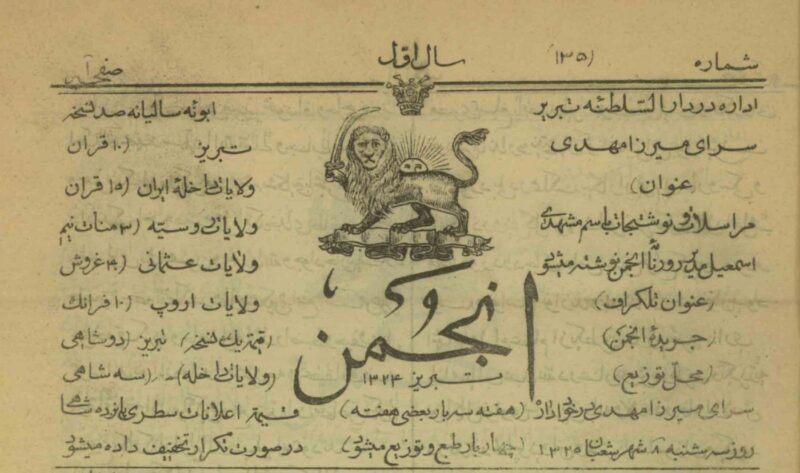 شماره (۱۳۵) سال اول صفحه ۱
اداره در دارالسلطنه تبریز
سرای میرزا مهدی
(عنوان)
مراسلات و نوشتیجات باسم مشهدی
اسمعیل مدیر روزنامهٔ انجمن نوشته میشود
(عنوان تلگراف)
(جریدهٔ انجمن)
(محل توزیع)
سرای میرزا مهدی
ابونه سالیانه صد نسخه
تبریز (۱۰ قران
ولایات داخلهٔ ایران (۱۵ قران
ولایات روسیه (۳ منات نیم
ولایات عثمانی (۴۰ غروش
ولایات اروپ (۱۰ فرانک
(قیمت یک نسخه) تبریز (دو شاهی
(ولایات داخله) - (سه شاهی
انجمن
تبریز ۱۳۲۴
(هفته سه بار بعضی هفته) قیمت اعلانات سطری پانزده شاهی
روز سه شنبه ۸ شهر شعبان ۱۳۲۵ (چهار بار طبع و توزیع میشود) در صورت تکرار تخفیف داده میشود